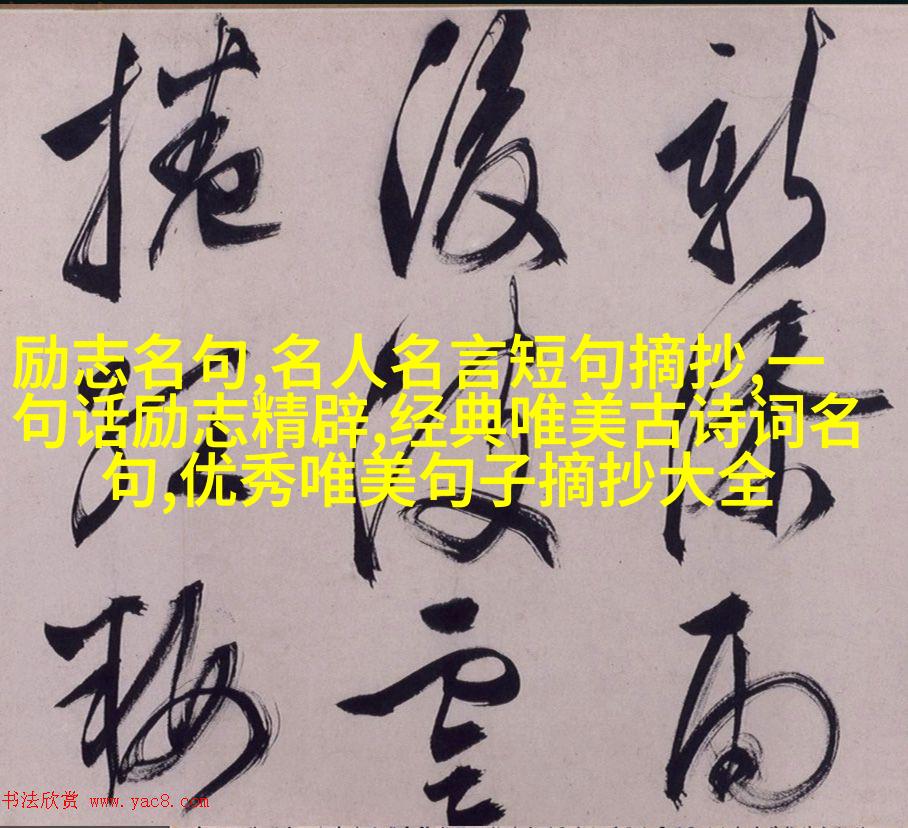 励志名句,名人名言短句摘抄,一
句话励志精辟,经典唯美古诗词名
句,优秀唯美句子摘抄大全
新雨
後雲
捲梅
书法欣赏 www.yac8.com